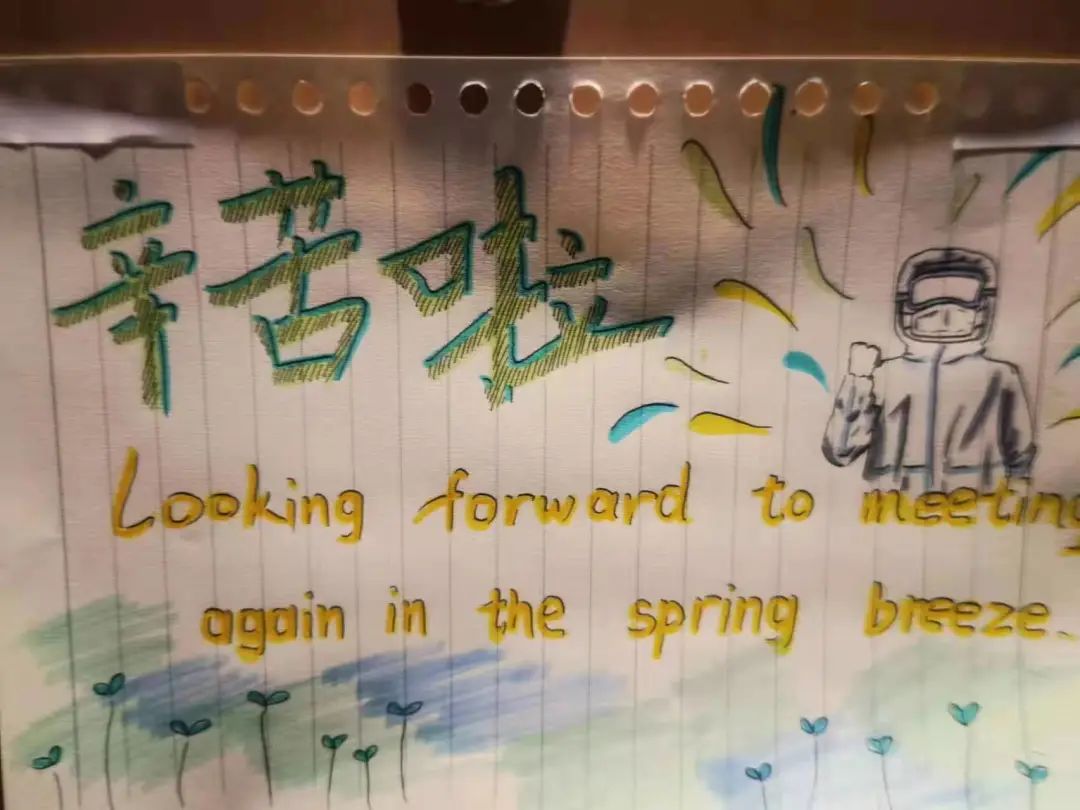 辛苦啦
Looking forward to meeting
again in the spring breeze.